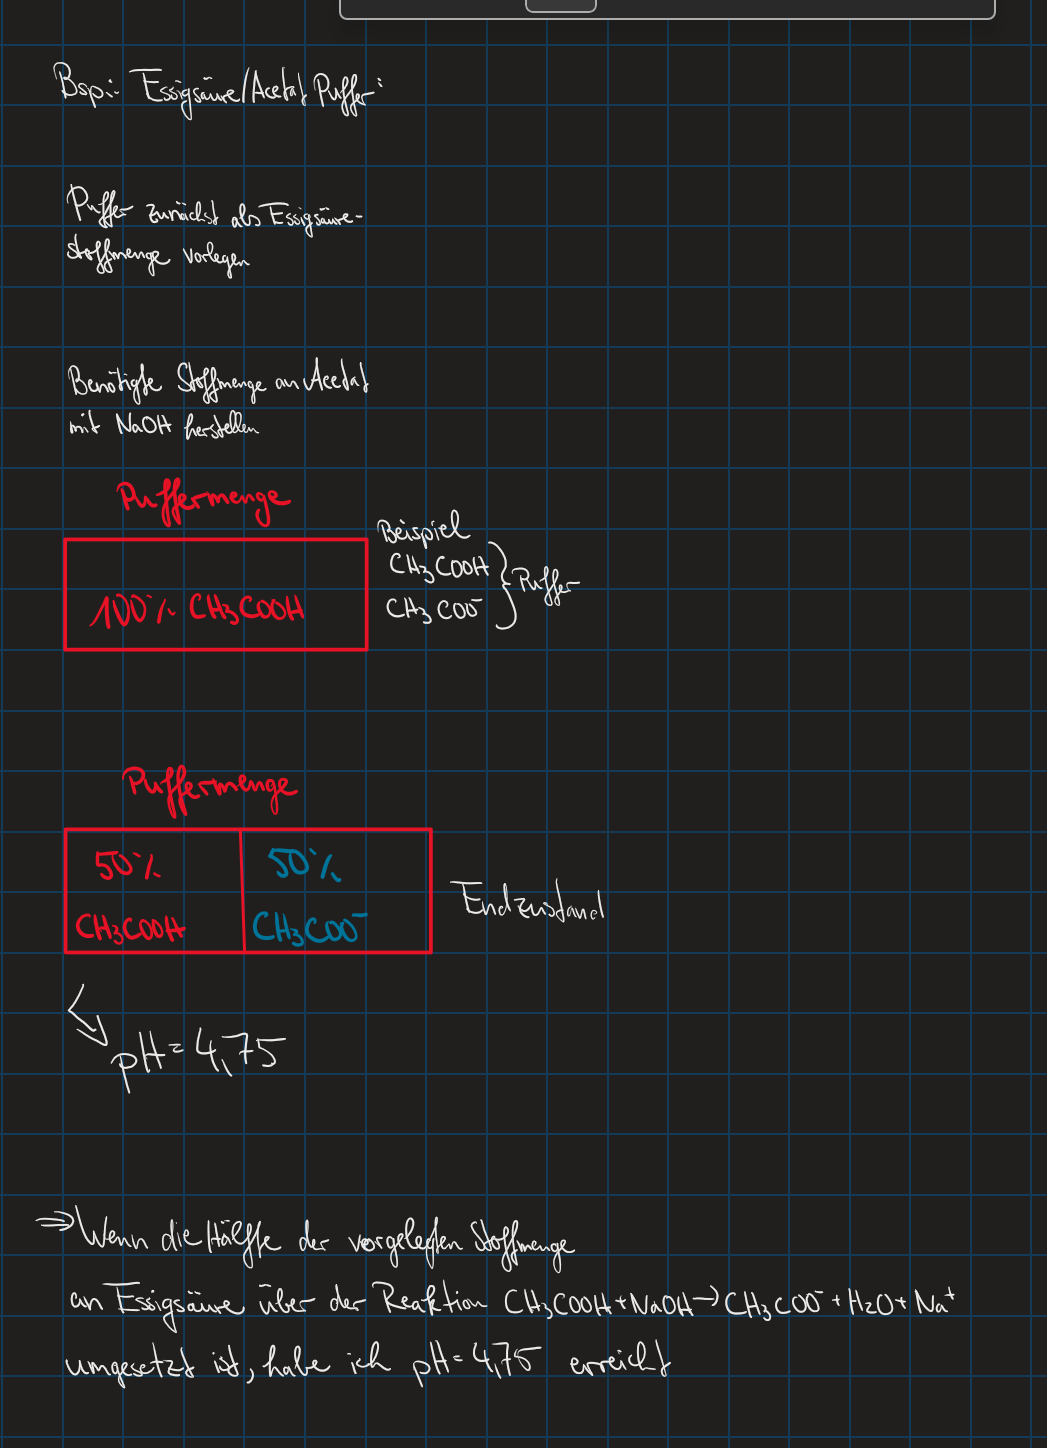 Bsp.: Essigsäure/Acetat Puffer:
Puffer zunächst als Essigsäure-
stoffmenge vorlegen
Benötigte Stoffmenge an Acetat
mit NaOH herstellen
Puffermenge
100% CH₃COOH
Beispiel
CH₃COOH
CH₃COO⁻
Puffer
Puffermenge
50% 50%
CH₃COOH CH₃COO⁻
Endzustand
pH = 4,75
⇒ Wenn die Hälfte der vorgelegten Stoffmenge
an Essigsäure über der Reaktion CH₃COOH + NaOH → CH₃COO⁻ + H₂O + Na⁺
umgesetzt ist, habe ich pH = 4,75 erreicht